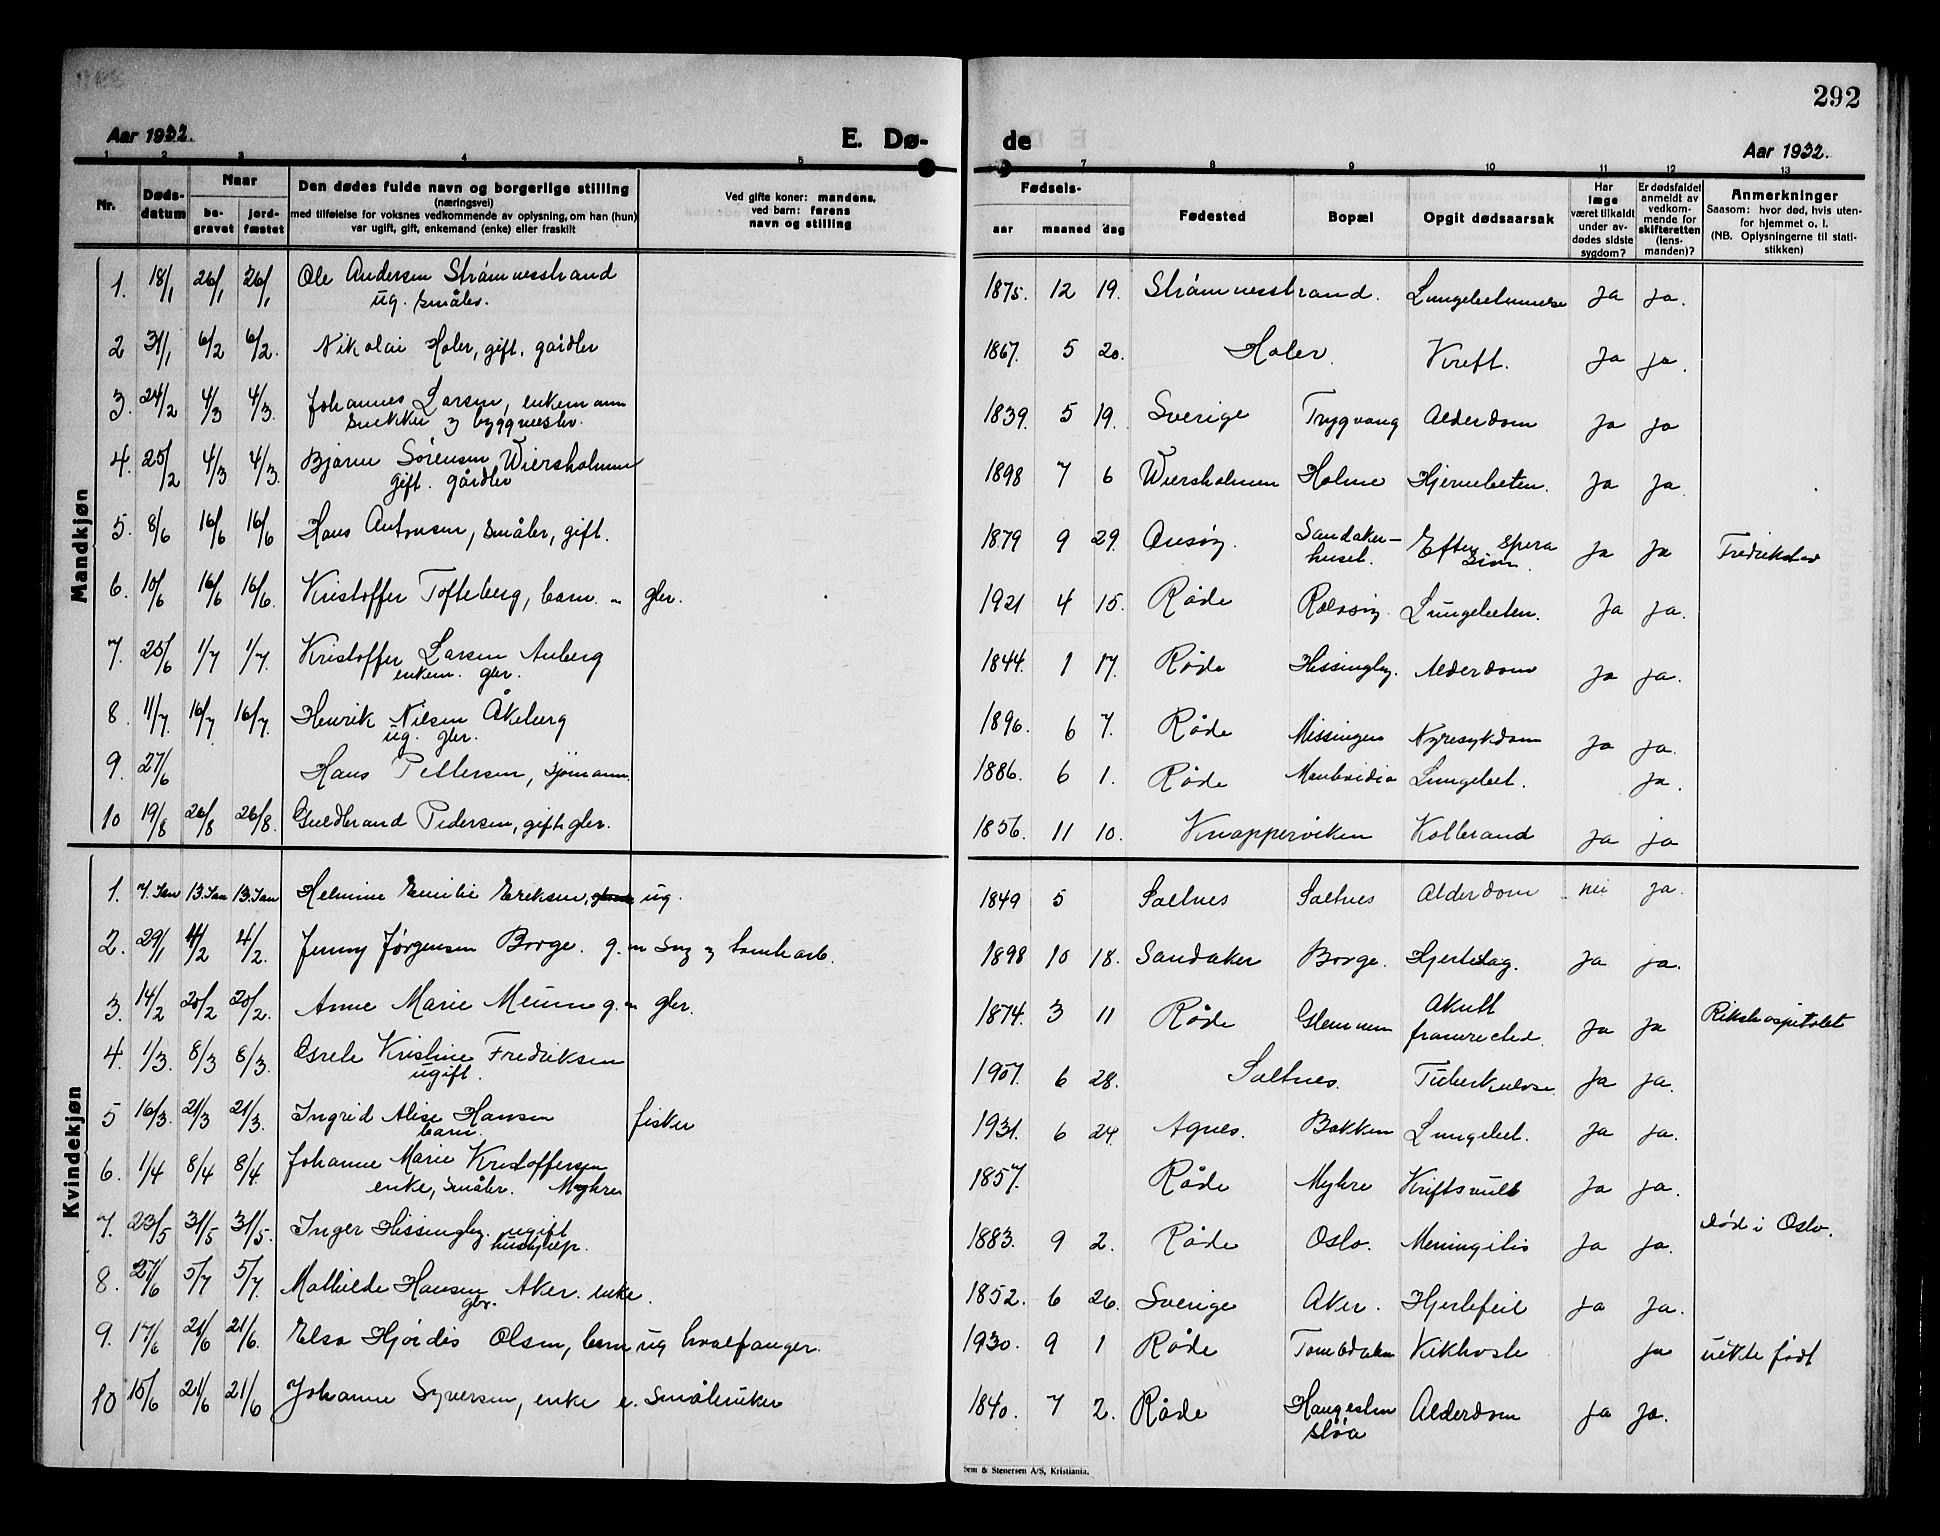 292
Aar 1932.
E. Dø-
de
Aar 1932.
1 2 3 4 5
7 8 9 10 11 12 13
Nr.
Døds-
datum
Naar
be-
gravet
jord-
fæstet
Den dødes fulde navn og borgerlige stilling
(næringsvei)
med tilføielse for voksnes vedkommende av oplysning, om han (hun)
var ugift, gift, enkemand (enke) eller fraskilt
Ved gifte koner: mandens,
ved barn: farens
navn og stilling
Fødsels-
aar maaned dag
Fødested
Bopæl
Opgit dødsaarsak
Har
læge
været tilkaldt
under av-
dødes sidste
sygdom?
Er dødsfaldet
anmeldt av
vedkom-
mende for
skifteretten
(lens-
manden)?
Anmerkninger
Saasom: hvor død, hvis uten-
for hjemmet o. l.
(NB. Oplysningerne til stati-
stikken)
Mandkjøn
1. 18/1 26/1 26/1 Ole Andersen Strømnesstrand 1875. 12 19. Strømnesstrand. Lungebetennelse ja ja.
ug. småbr.
2 31/1 6/2 6/2. Nikolai Holer, gift, gårdbr 1867. 5 20. Holer. Kreft. Ja ja.
3. 24/2 4/3 4/3. Johannes Larsen, enkemann 1839. 5 19. Sverige Trygvang Alderdom Ja ja
snekker og byggmestr.
4. 25/2 4/3 4/3. Bjarne Sørensen Wiersholmen 1898 7 6 Wiersholmen Holme Hjernebeten. Ja ja.
gift. gårdbr
5. 8/6 16/6 16/6 Hans Antonsen, småbr, gift. 1879 9 29. Onsøy. Sandaker- Efter opera ja ja Fredrikstad
huset. sion.
6. 10/6 16/6 16/6. Kristoffer Tofteberg, barn. gbr. 1921 4 15. Råde Rolvsøy Lungebeten. Ja ja.
7. 25/6 1/7 1/7. Kristoffer Larsen Auberg 1844. 1 17. Råde Hissingby. Alderdom ja ja.
enkem. gbr.
8. 11/7. 16/7 16/7. Henrik Nilsen Åkeberg 1896. 6 7. Råde Missingen Nyresykdom ja ja.
ug. gbr.
9. 27/6 Hans Pettersen, sjømann. 1886. 6 1. Råde Montevidio Lungebet. ja.
10 19/8 26/8 26/8. Guldbrand Pedersen, gift gbr. 1856. 11 10. Knapperviken Kolbrand Ja ja
Kvindekjøn
1. 7. Jan 13. Jan 13. Jan Helmine Emilie Eriksen, ug. 1849 5 Saltnes Saltnes Alderdom nei ja.
2. 29/1 4/2 4/2. Jenny Jørgensen Borge. g. m sag og tomtearb. 1898 10 18. Sandaker Borge. Hjerteslag. Ja ja.
3. 14/2 20/2 20/2. Anne Marie Meum g. m gbr. 1874. 3 11 Råde Glemmen Akutt Ja ja Rikshospitalet
4. 1/3. 8/3 8/3. Grete Kristine Fredriksen 1907. 6 28. Saltnes. Tuberkulose Ja ja.
ugift.
5 16/3. 21/3 21/3. Ingrid Alise Hansen fisker 1931. 6 24. Agnes. Bakken Lungebet. Ja ja.
barn.
6. 1/4 8/4 8/4. Johanne Marie Kristoffersen 1857. Råde Myhre Kreftsvulst Ja ja.
enke, småbr. Myhre
7. 23/5 31/5 31/5. Inger Hissingby, ugift 1883. 9 2. Råde Oslo. Meningitis Ja ja. død i Oslo.
hushjelp.
8. 27/6 5/7 5/7. Mathilde Hansen Aker. enke. 1852. 6 26. Sverige Aker. Hjertefeil ja ja.
gbr.
9. 17/6 21/6 21/6. Elsa Hjørdis Olsen, barn ug hvalfanger. 1930. 9 1 Råde Tombdalen Kikhoste ja uekte født
10 15/6 21/6 21/6 Johanne Syversen, enke e. småbruker 1840. 7 2. Råde Haugesten Alderdom ja ja.
støa
Sem & Stenersen A/S, Kristiania.